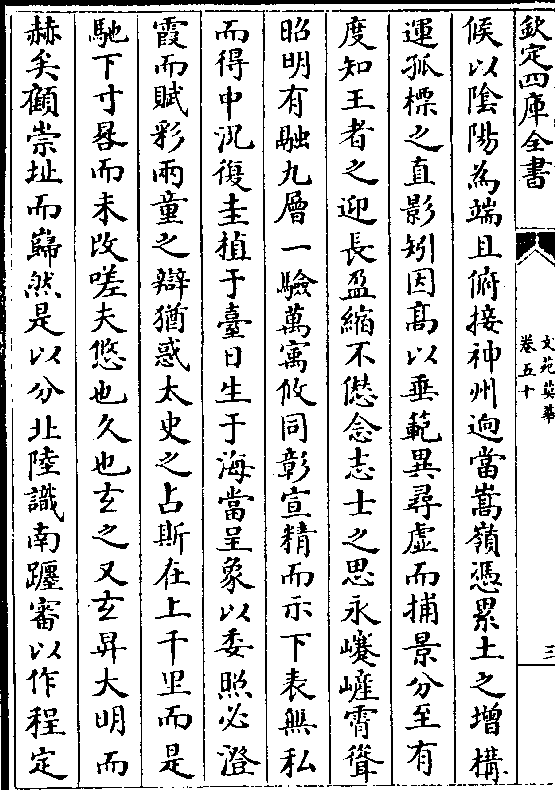 欽定四庫全書
文苑英華
卷五十
三
候以陰陽為端且俯接神州逈當嵩嶺憑累土之增構
運孤標之直影矧因髙以垂範異尋虚而捕景分至有
度知王者之迎長盈縮不愆念志士之思永巇嵼霄聳
昭明有融九層一驗萬寓攸同彰宣精而示下表無私
而得中況復圭植于臺日生于海當呈象以委照必澄
霞而賦彩兩童之辯猶惑太史之占斯在上千里而是
馳下寸晷而未改嗟夫悠也久也玄之又玄昇大明而
赫矣顧崇址而巋然是以分北陸識南躔審以作程定